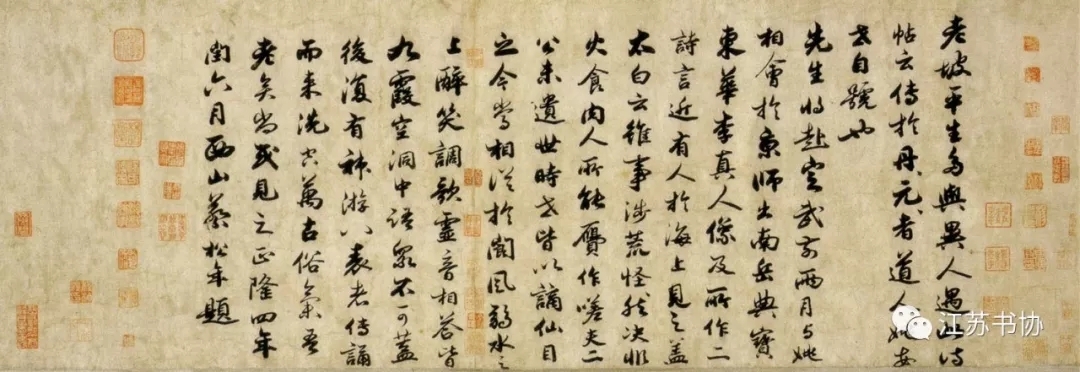 老坡平生多與異人遇此詩
帖云傳於丹元〻者道人姚安
世自號也
先生將赴定武前兩月與姚
相會於京師出南岳典寶
東華李真人像及所作二
詩言近有人於海上見之蓋
太白云雖事涉荒怪然決非
火食肉人所能贋作嗟夫二
公未遺世時世皆以謫仙目
之今當相從於閬風弱水之
上醉笑調歌靈音相答皆
九霞空洞中語不可蓋
後復有神游八表者傳誦
而來洗空萬古俗氣吾
老矣尚或見之正隆四年
閏六月西山蔡松年題
江苏书协